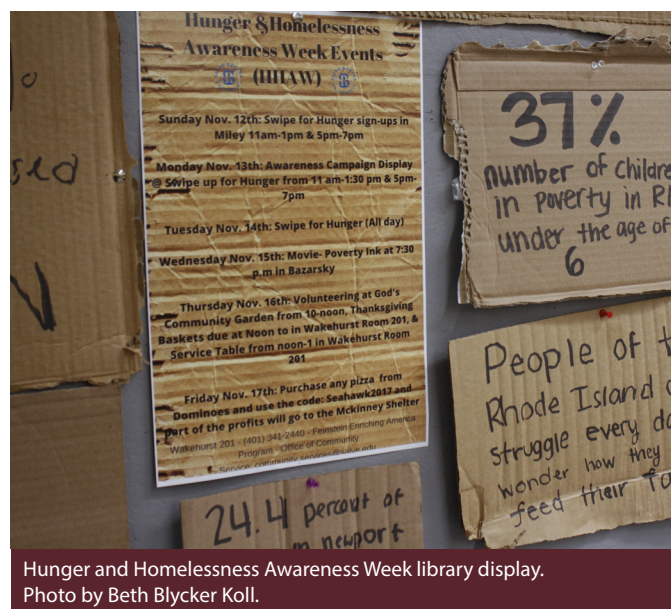 Hunger &Homelessness
Awareness Week Events
(HHAW)
Sunday Nov. 12th: Swipe for Hunger sign-ups in
Miley 11am-1pm & 5pm-7pm
Monday Nov. 13th: Awareness Campaign Display
@ Swipe up for Hunger from 11 am-1:30 pm & 5pm-
7pm
Tuesday Nov. 14th: Swipe for Hunger (All day)
Wednesday Nov. 15th: Movie- Poverty Ink at 7:30
p.m in Bazarsky
Thursday Nov. 16th: Volunteering at God's
Community Garden from 10-noon, Thanksgiving
Baskets due at Noon to in Wakehurst Room 201, &
Service Table from noon-1 in Wakehurst Room
201
Friday Nov. 17th: Purchase any pizza from
Dominoes and use the code: Seahawk2017 and
part of the profits will go to the Mckinney Shelter
Wakehurst 201 - (401) 341-2440 - Feinstein Enriching America
Program - Office of Community
Service,
37%
number of childre
in poverty in RI
under the age of
6
People of
Rhode Island
struggle every da
wonder how they
feed their
24.4 percent of
newport
Hunger and Homelessness Awareness Week library display.
Photo by Beth Blycker Koll.